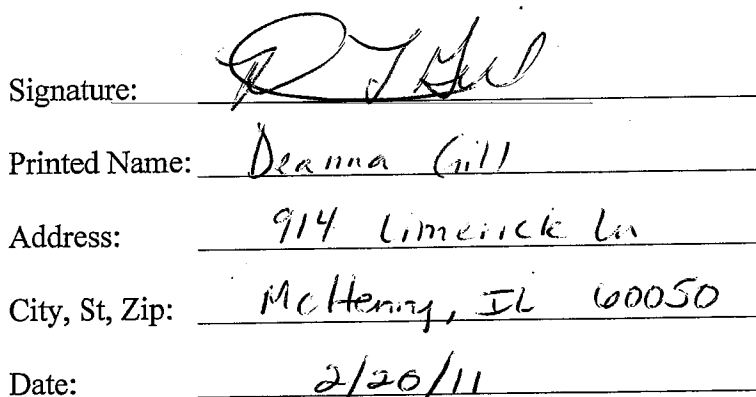 Signature: D T Gill
Printed Name: Deanna Gill
Address: 914 Limerick Ln
City, St, Zip: McHenry, IL 60050
Date: 2/20/11